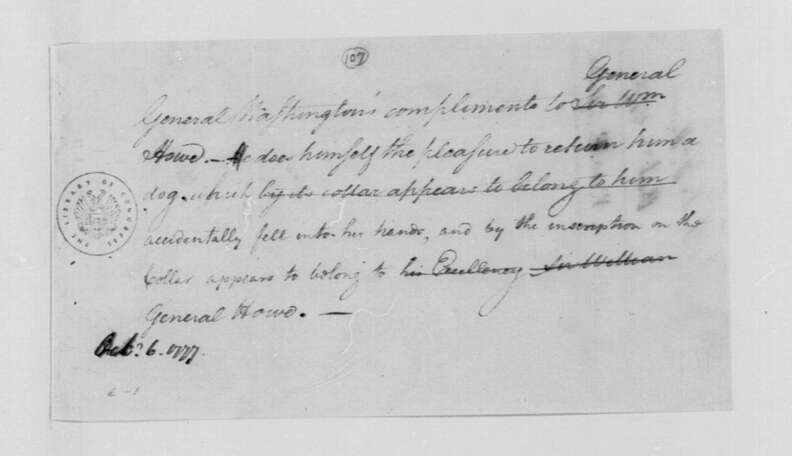 107
General
General Washington's compliments to Sir Wm
Howe. — He does himself the pleasure to return him a
dog, which by its collar appears to belong to him
accidentally fell into his hands, and by the inscription on the
Collar appears to belong to his Excellency Sir William
General Howe. —
Octbr. 6. 1777.
THE LIBRARY OF CONGRESS